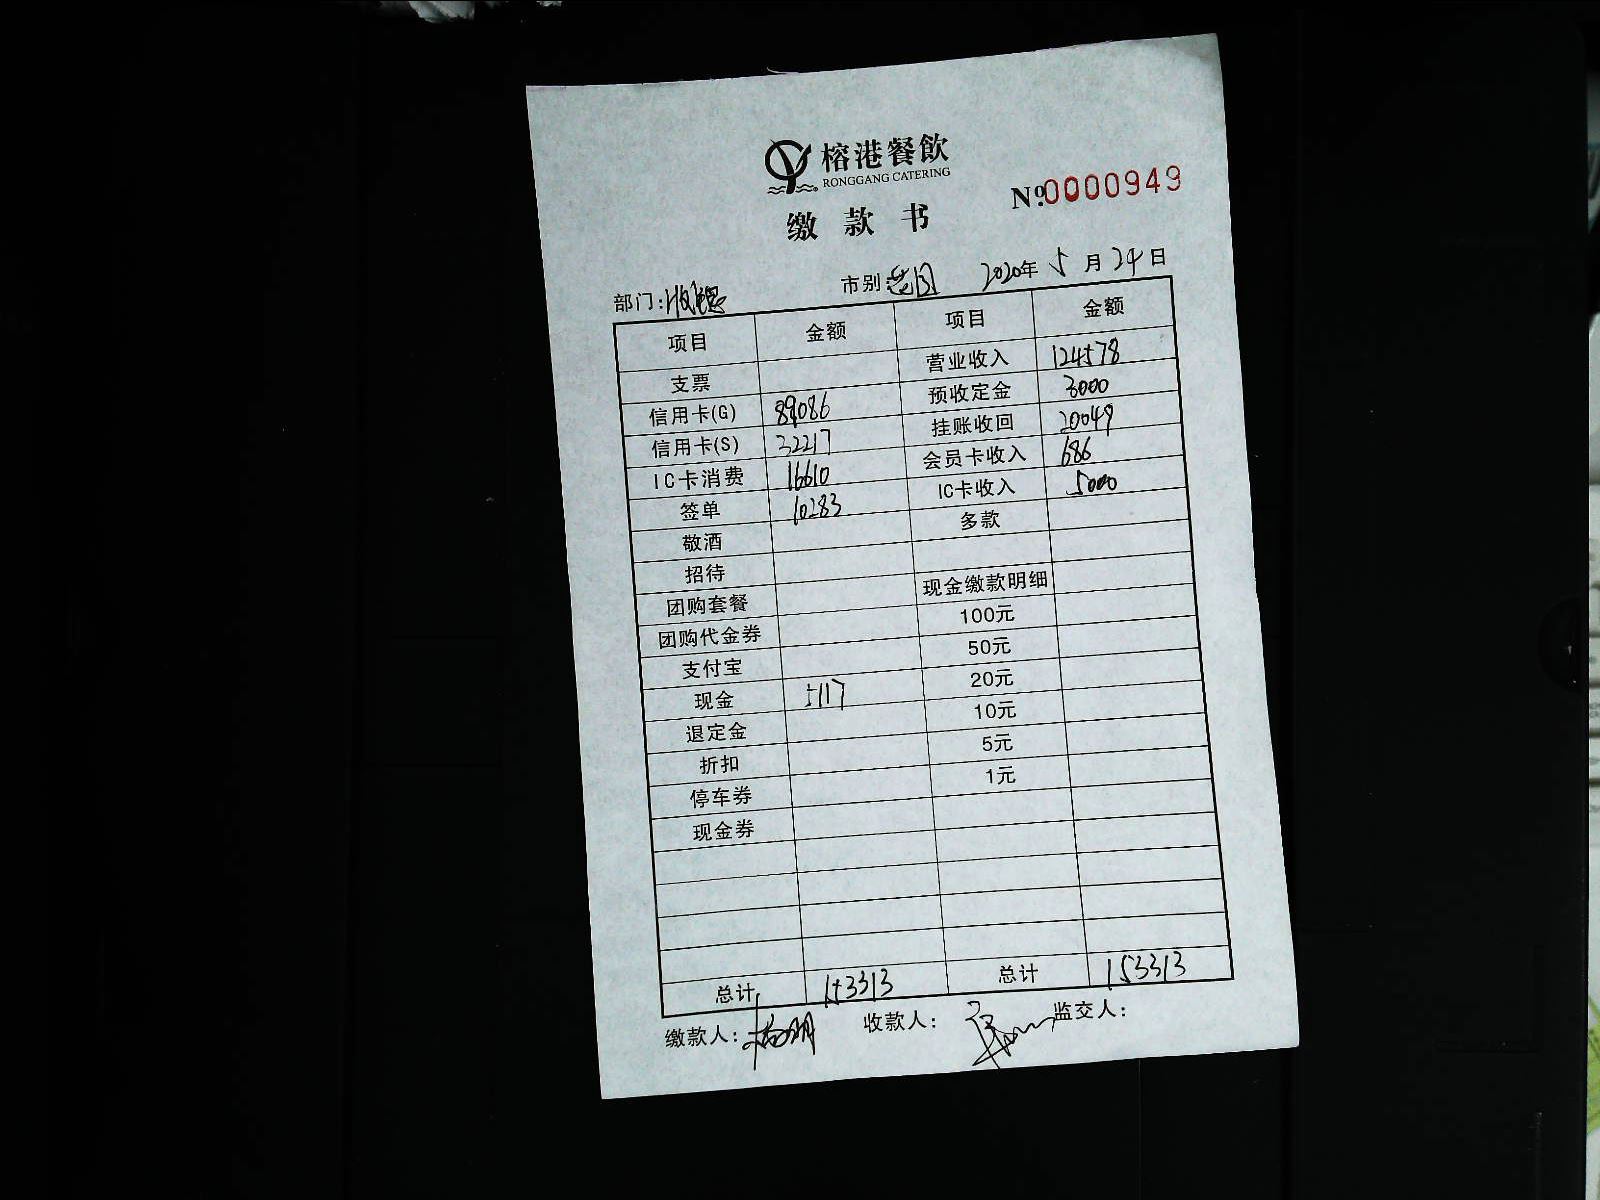 榕港餐飲
RONGGANG CATERING
№0000949
缴款书
部门: 市别: 2020年5月24日
项目 金额 项目 金额
支票 营业收入 124578
信用卡(G) 89086 预收定金 3000
信用卡(S) 32217 挂账收回 20049
IC卡消费 16610 会员卡收入 686
签单 10283 IC卡收入 5000
敬酒 多款
招待
团购套餐 现金缴款明细
团购代金券 100元
支付宝 50元
现金 5117 20元
退定金 10元
折扣 5元
停车券 1元
现金券
总计 153313 总计 153313
缴款人: 收款人: 监交人: